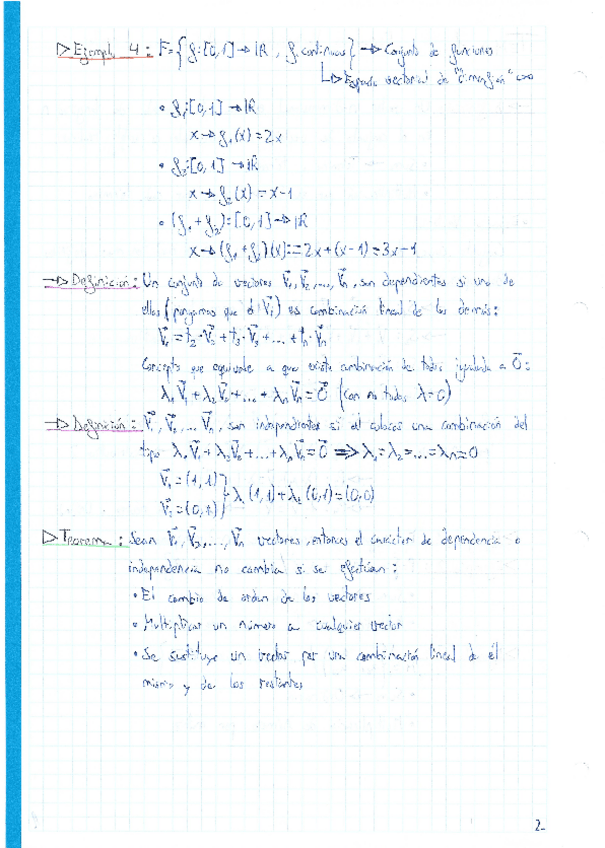 ▷ Ejemplo 4: F={f:[0,1]→ℝ, f continuas} → Conjunto de funciones
↳ Espacio vectorial de "dimensión" ∞
• f₁:[0,1]→ℝ
x→f₁(x)=2x
• f₂:[0,1]→ℝ
x→f₂(x)=x-1
• (f₁+f₂)=[0,1]→ℝ
x→(f₁+f₂)(x):=2x+(x-1)=3x-1
→ Definición: Un conjunto de vectores V⃗₁,V⃗₂,...,V⃗ₙ, son dependientes si uno de
ellos (pongamos que el V⃗₁) es combinación lineal de los demás:
V⃗₁=t₂·V⃗₂+t₃·V⃗₃+...+tₙ·V⃗ₙ
Concepto que equivale a que exista combinación de todos igualada a 0⃗:
λ₁V⃗₁+λ₂V⃗₂+...+λₙV⃗ₙ=0⃗ (con no todos λ=0)
→ Definición: V⃗₁,V⃗₂,...V⃗ₙ, son independientes si al colocar una combinación del
tipo λ₁V⃗₁+λ₂V⃗₂+...+λₙV⃗ₙ=0⃗ ⇒ λ₁=λ₂=...=λₙ=0
V⃗₁=(1,1)
V⃗₂=(0,1) } λ₁(1,1)+λ₂(0,1)=(0,0)
▷ Teorema: Sean V⃗₁,V⃗₂,...,V⃗ₙ vectores, entonces el carácter de dependencia o
independencia no cambia si se efectúan:
• El cambio de orden de los vectores
• Multiplicar un número a cualquier vector
• Se sustituye un vector por una combinación lineal de él
mismo y de los restantes
2-